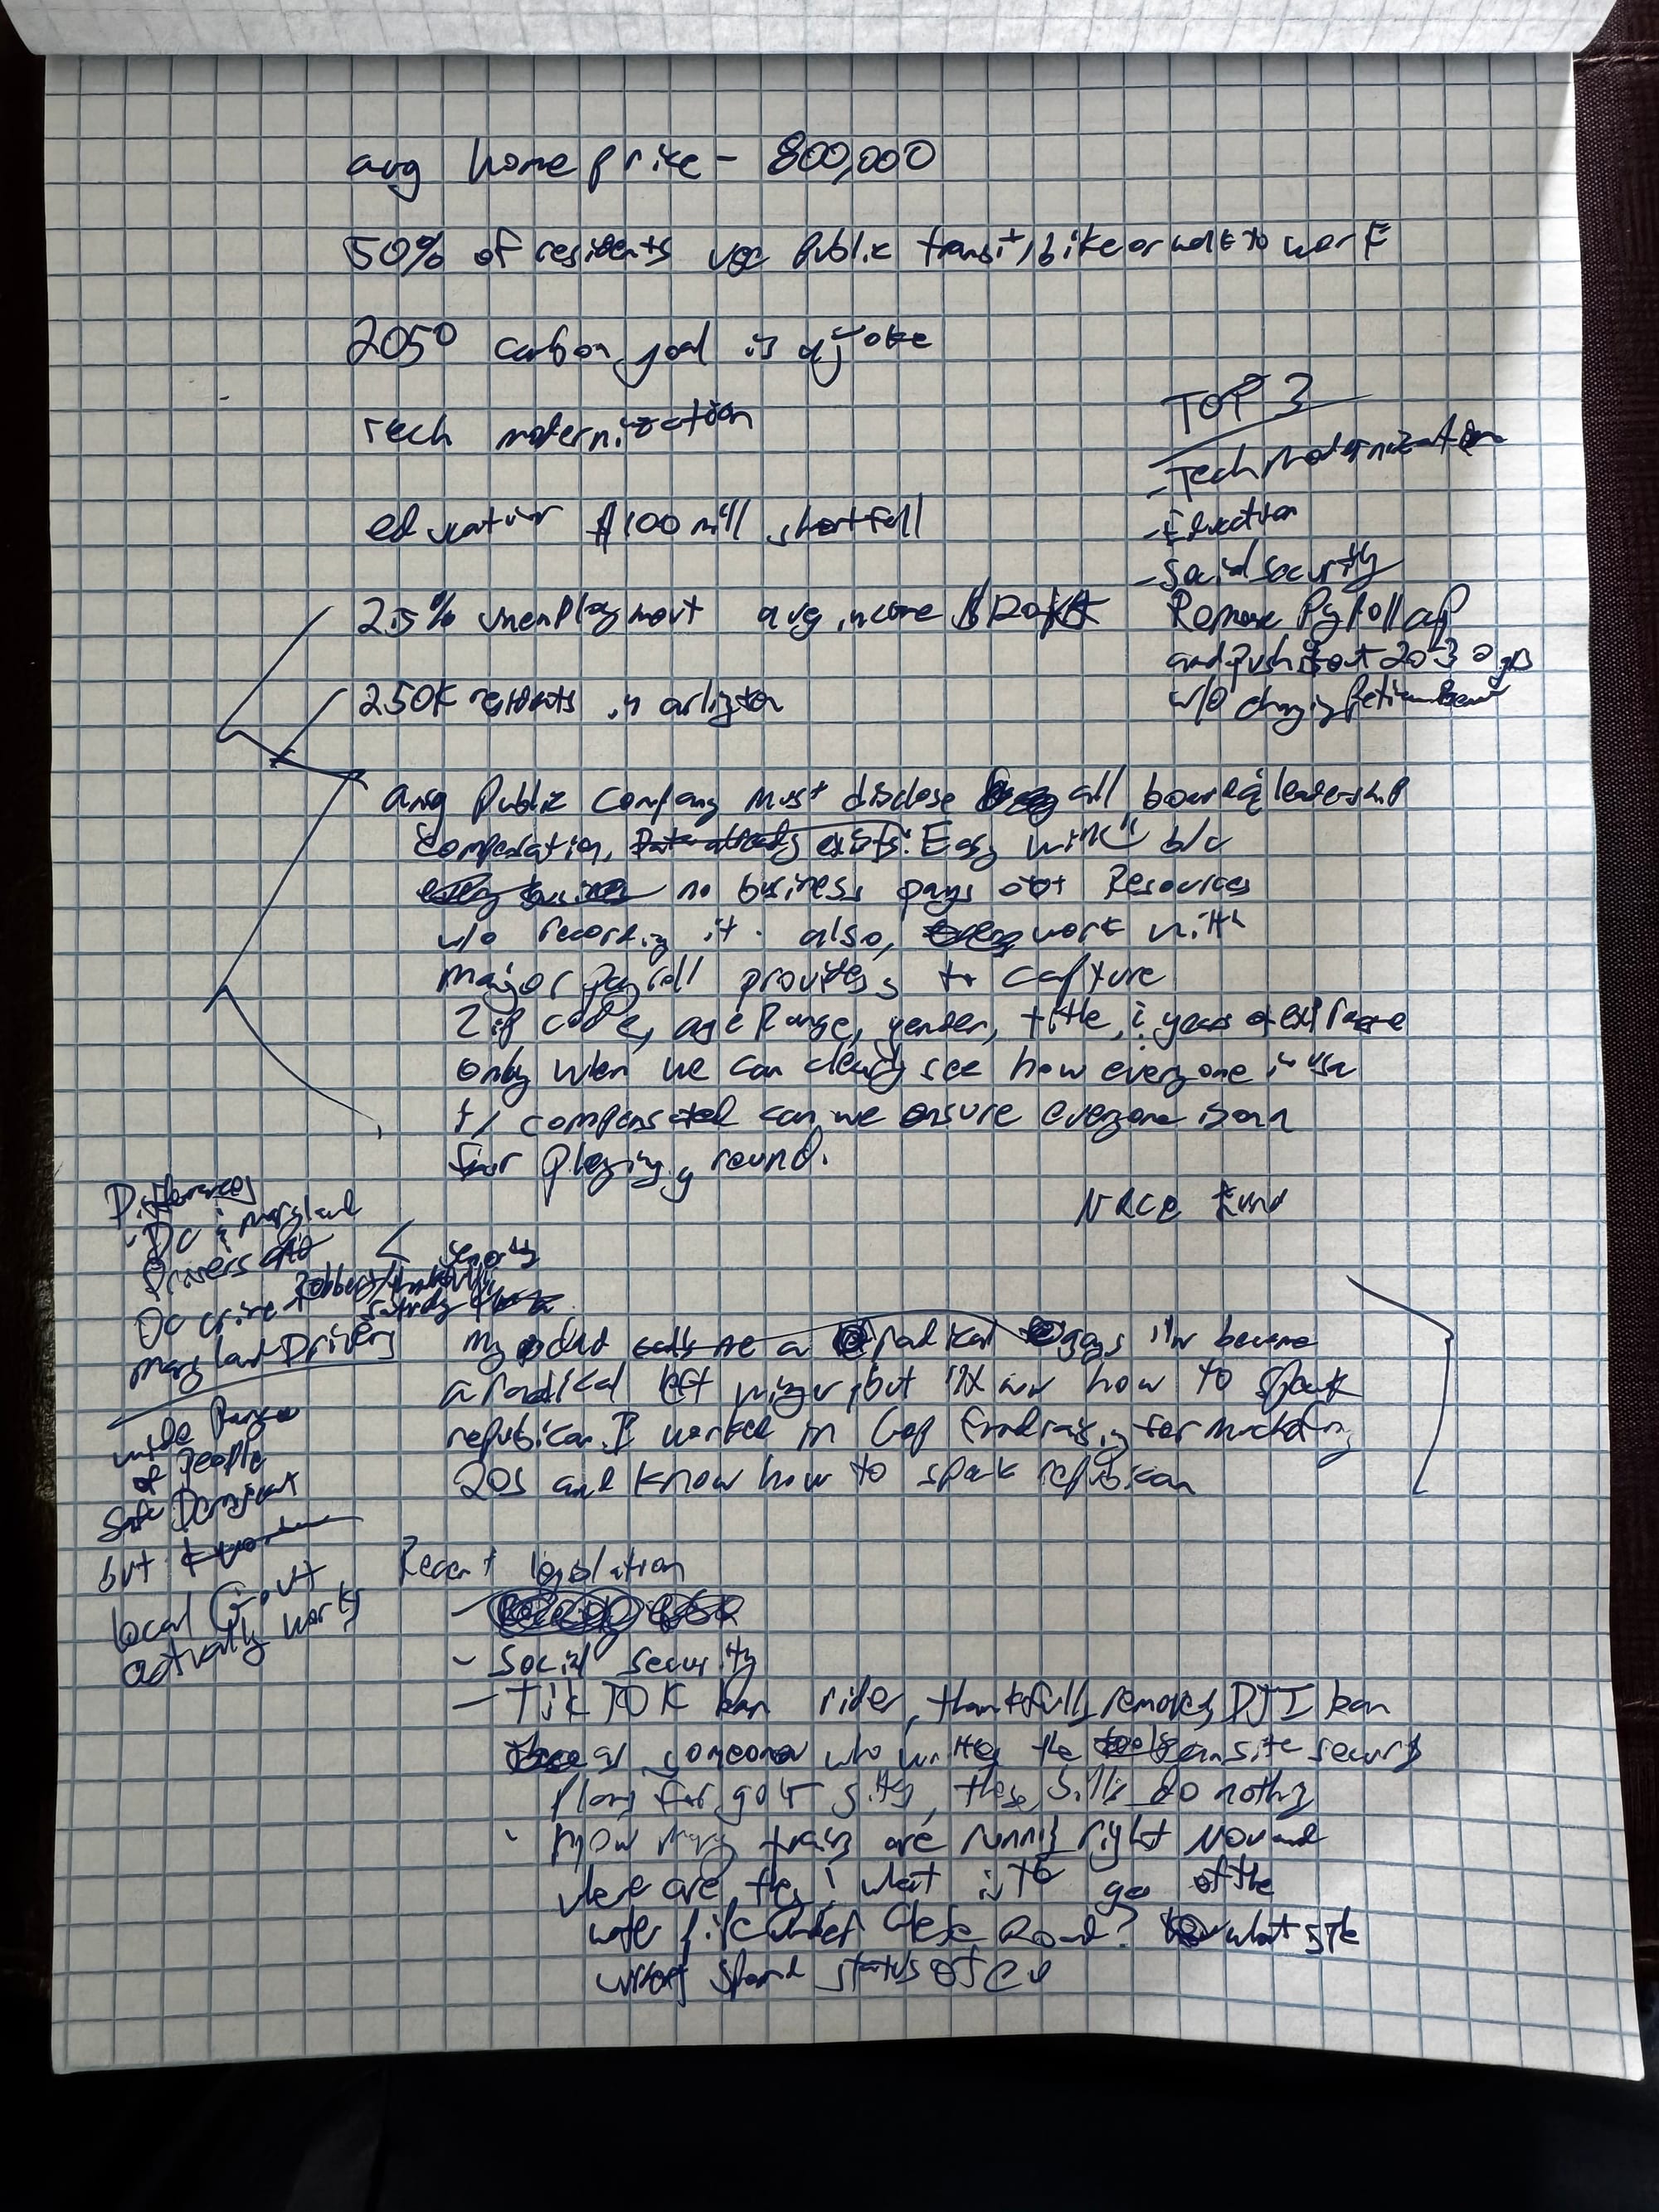 avg home price - 800,000
50% of residents use public transit, bike or walk to work
2050 carbon goal is a joke
Tech modernization
education $100 mill shortfall
2.5% unemployment avg income $120K
250K residents in arlington
TOP 3
- Tech Modernization
- Education
- Social security
Remove Payroll cap
and push it out 2053 @ yrs
w/o changing Retirement
any Public Company must disclose all board & leadership
compensation, Data already exists. Easy "win" b/c
every business no business pays out Resources
w/o recording it. also, work with
major payroll providers to capture
Zip code, age Range, gender, title, & years of
only when we can clearly see how everyone in usa
is compensated can we ensure everyone is on a
fair playing ground.
NRCC fund
Differences
- DC & Maryland
Drivers
DC crime -
Maryland Drivers
wide Range
of people
safe Democrat
but
local Govt
actually works
my dad calls me a radical says I've become
a radical left winger, but I know how to speak
republican. I worked in GOP fundraising for my
20s and know how to speak republican
Recent legislation
- Social security
- TikTOK ban rider, thankfully removed DJI ban
as someone who writes the onsite security
plans for govt sites, these bills do nothing
- How many trains are running right Now and
where are they? what is the age of the
water pipe under Road? what is the
current status of